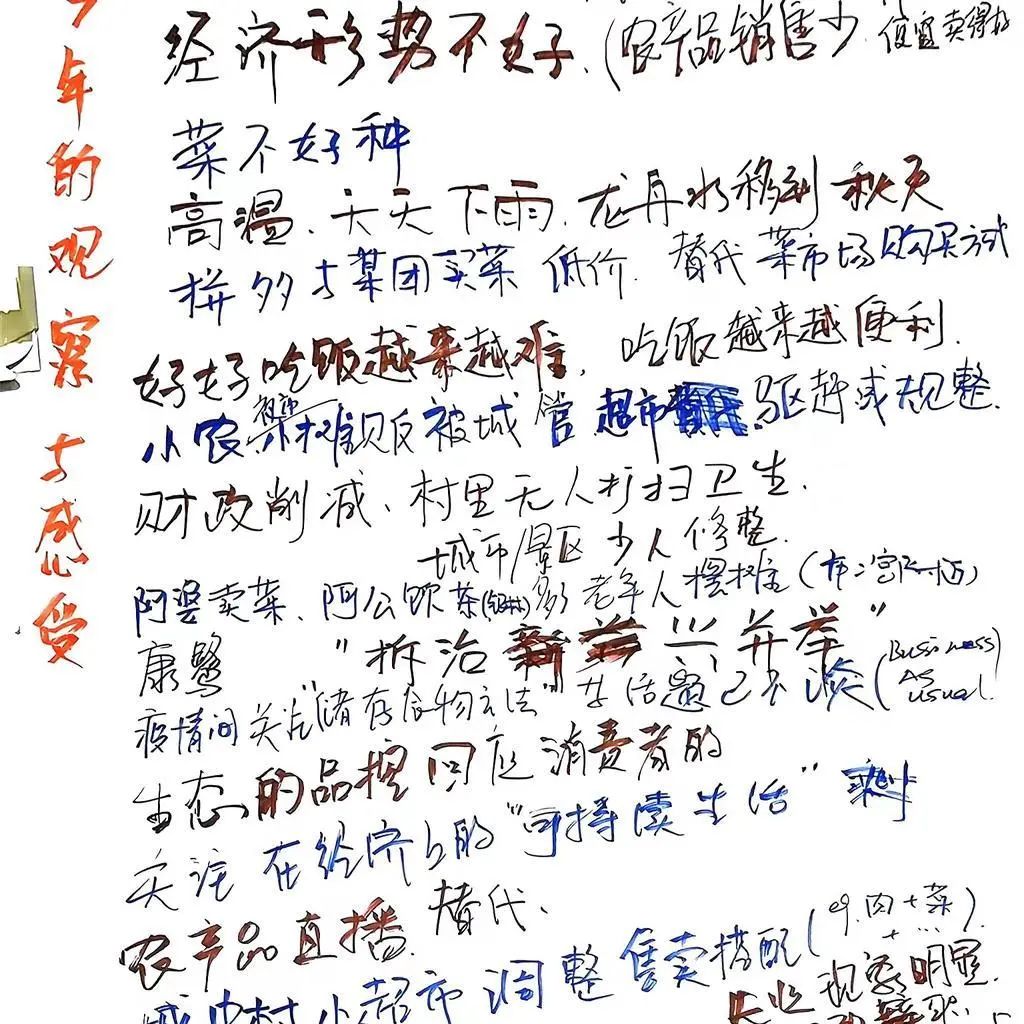 年的观察与感受
经济形势不好.(农产品销售少 便宜卖得好
菜不好种
高温.天天下雨.龙舟水移到秋天
拼多与某团买菜 低价.替代菜市场购买方式
好好吃饭越来越难,吃饭越来越便利.
小农摆摊贩反被城管 超市 驱赶或规整.
财政削减、村里无人打扫卫生.
城市/景区少人修整.
阿婆卖菜、阿公饮茶 多老年人摆摊
康鹭 "拆治 兴并举"
疫情间关注"储存食物方法" 话题已不谈(Business As usual.
生态的品提回应消费者的
关注 在经济上的"可持续生活"
农产品直播.替代、
城中村小超市调整售卖搭配(eg.肉+菜)
+ ...
现象明显.